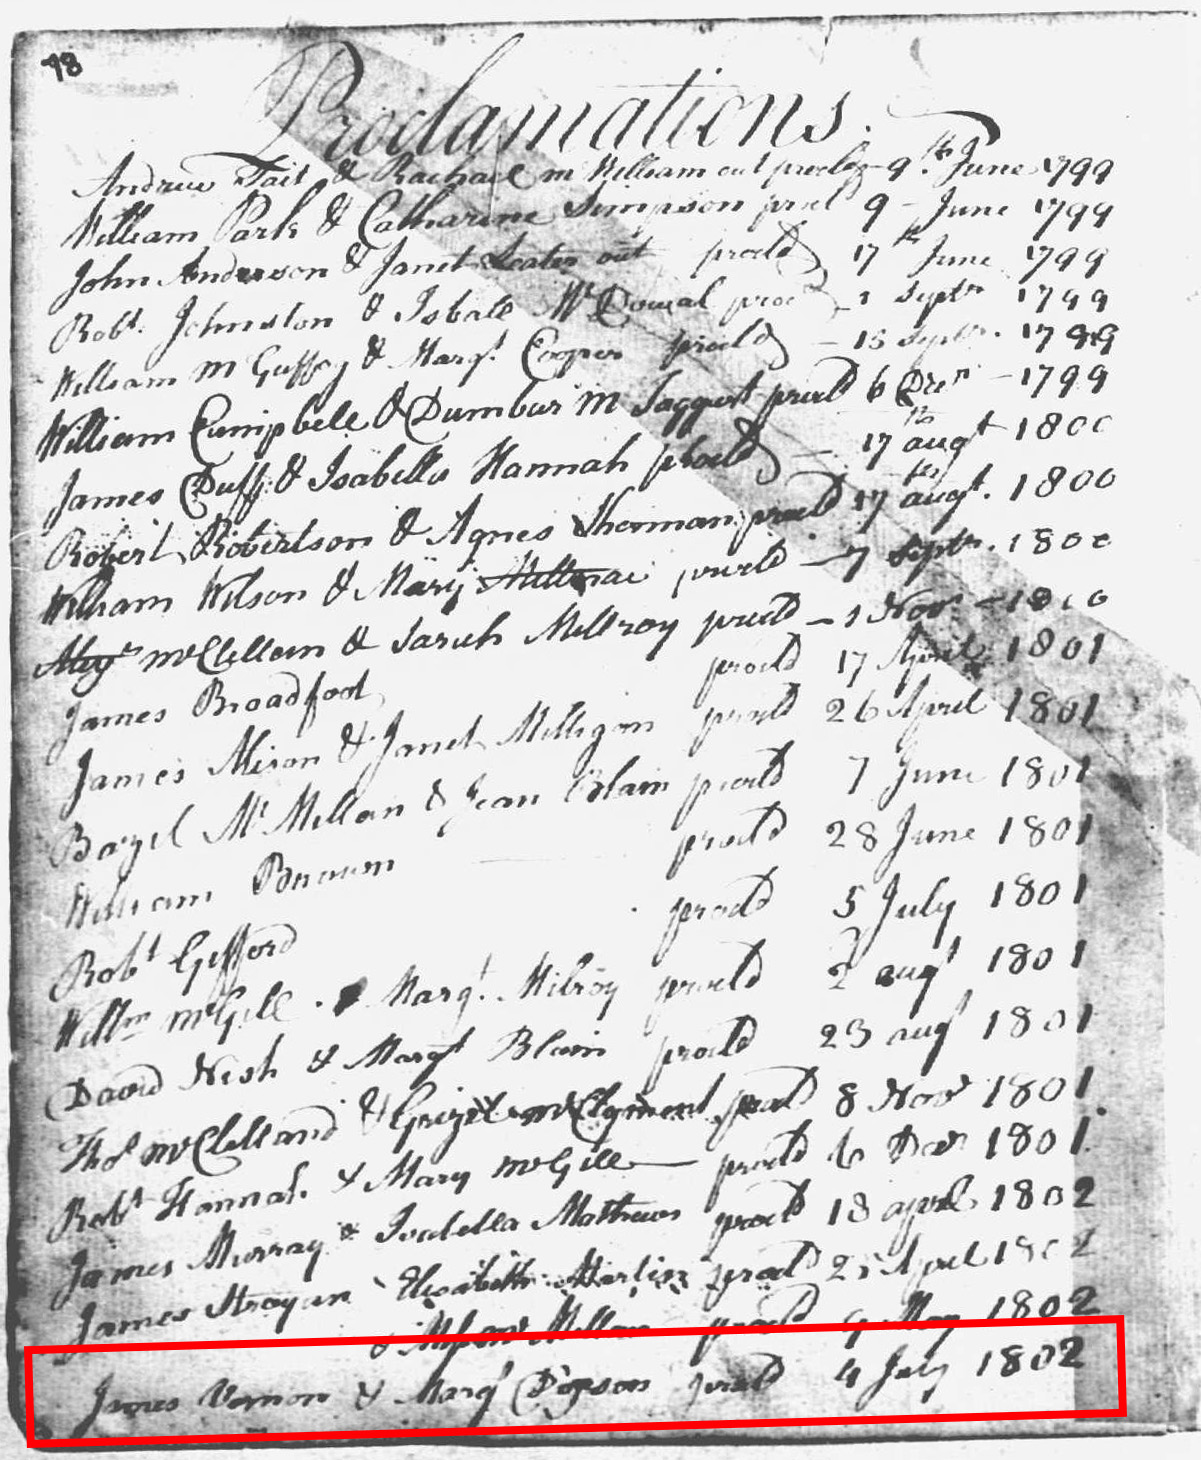 78
Proclamations.
Andrew Tait & Rachael m William out procld 9th June 1799
William Park & Catharine Simpson procld 9 - June 1799
John Anderson & Janet out procld 17th June 1799
Robt. Johnston & Isball Mc Dowal procd 1 Septr 1799
William m Guffog & Margt. Cooper procld - 15 Septr. 1799
William Campbell & Dunbar m Taggart procld 6 Decr - 1799
James Duff & Isabella Hannah procld - 17th augt 1800
Robert Robertson & Agnes procld 17th augt. 1800
William Wilson & Mary procld - 7 Septr. 1800
mcClellan & Sarah Millroy procld - 1 Novr - 1800
James Broadfoot procld 17 April 1801
James & Janet Milligan procld 26 April 1801
Bazel Mc Millan & Jean Blain procld 7 June 1801
William Brown procld 28 June 1801
Robt Gifford procld 5 July 1801
Willm mcGill & Margt. Milroy procld 2 augt 1801
David Nish & Margt Blain procld 23 augt 1801
Thos mcClelland & Grizel mcClyment procld 8 Novr 1801
Robt Hannah & Mary mcGill - procld 6 Decr 1801
James Murray & Isabella Mathews procld 18 april 1802
James Stroyan Elizabeth procld 25 April 1802
& mc Millan procld 9 May 1802
James Vernon & Margt procld 4 July 1802